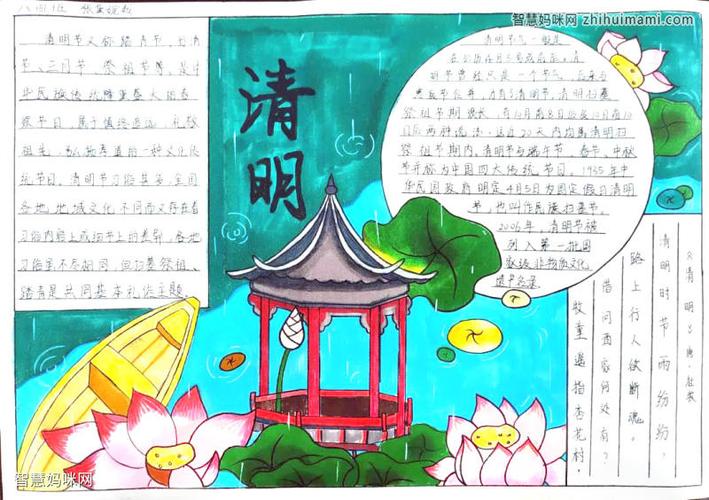 智慧妈咪网 zhihuimami.com
清明
清明节又称踏青节、行清
节、三月节、祭祖节等，是中
华民族传统隆重盛大的春
祭节日，属于慎终追远、礼敬
祖先、弘扬孝道的一种文化传
统节日。清明节习俗甚多，全国
各地地域文化不同而又存在着
习俗内容上或细节上的差别，各地
习俗虽不尽相同，但扫墓祭祖、
踏青是共同基本礼俗主题
清明节气一般是
在公历4月5号或前后。清
明节曾经只是一个节气，后来与
寒食节合并，
祭祖节期很长，有10日前8日后及10日前10
日后两种说法，这近20天内均属清明扫
祭祖节期内。清明节与端午节、春节、中秋
节并称为中国四大传统节日。1935年中
华民国政府明定4月5日为国定假日清明
节，也叫作民族扫墓节。
2006年，清明节被
列入第一批国
家级非物质文化
遗产名录。
《清明》唐·杜牧
清明时节雨纷纷，
路上行人欲断魂。
借问酒家何处有？
牧童遥指杏花村。
智慧妈咪网